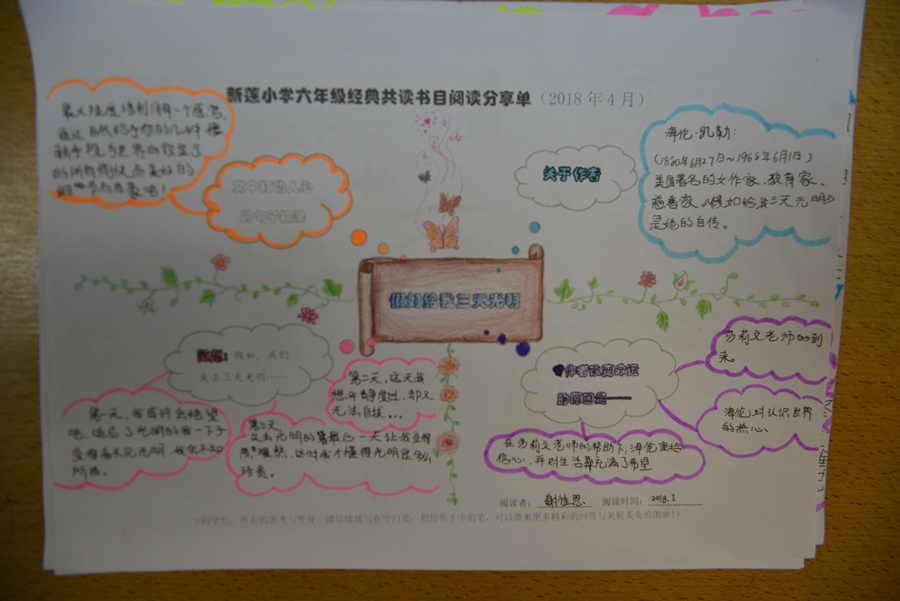 新莲小学六年级经典共读书目阅读分享单（2018年4月）
最大限度地利用每一个感官，
通过自然给予你的几种接
触手段为世界向你显了
的所有愉悦而美好的
细节而自豪吧！
文中打动人心
的句子摘录
关于作者
海伦·凯勒：
（1880年6月27日～1968年6月1日）
美国著名的女作家、教育家、
慈善家。《假如给我三天光明》
是她的自传。
假如给我三天光明
假如，我们
失去三天光明……
第一天，我或许会绝望
吧，适应了光明的我一下子
变得看不见光明，我会不知
所措。
第二天，这天我
想平静度过，却又
无法自拔...
第三天
失去光明的最后一天让我变得
这时我才懂得光明是多么
珍贵。
作者改变命运
的原因是——
莎莉文老师的到
来。
海伦对认识世界
的热心。
在莎莉文老师的帮助下，海伦重拾
信心，并对生活充满了希望
阅读者： 阅读时间：2018.1
（同学们，所有的思考与发现，请尽情填写在空白处，相信你手中的笔，可以带来更多精彩的回答与美轮美奂的图画！）